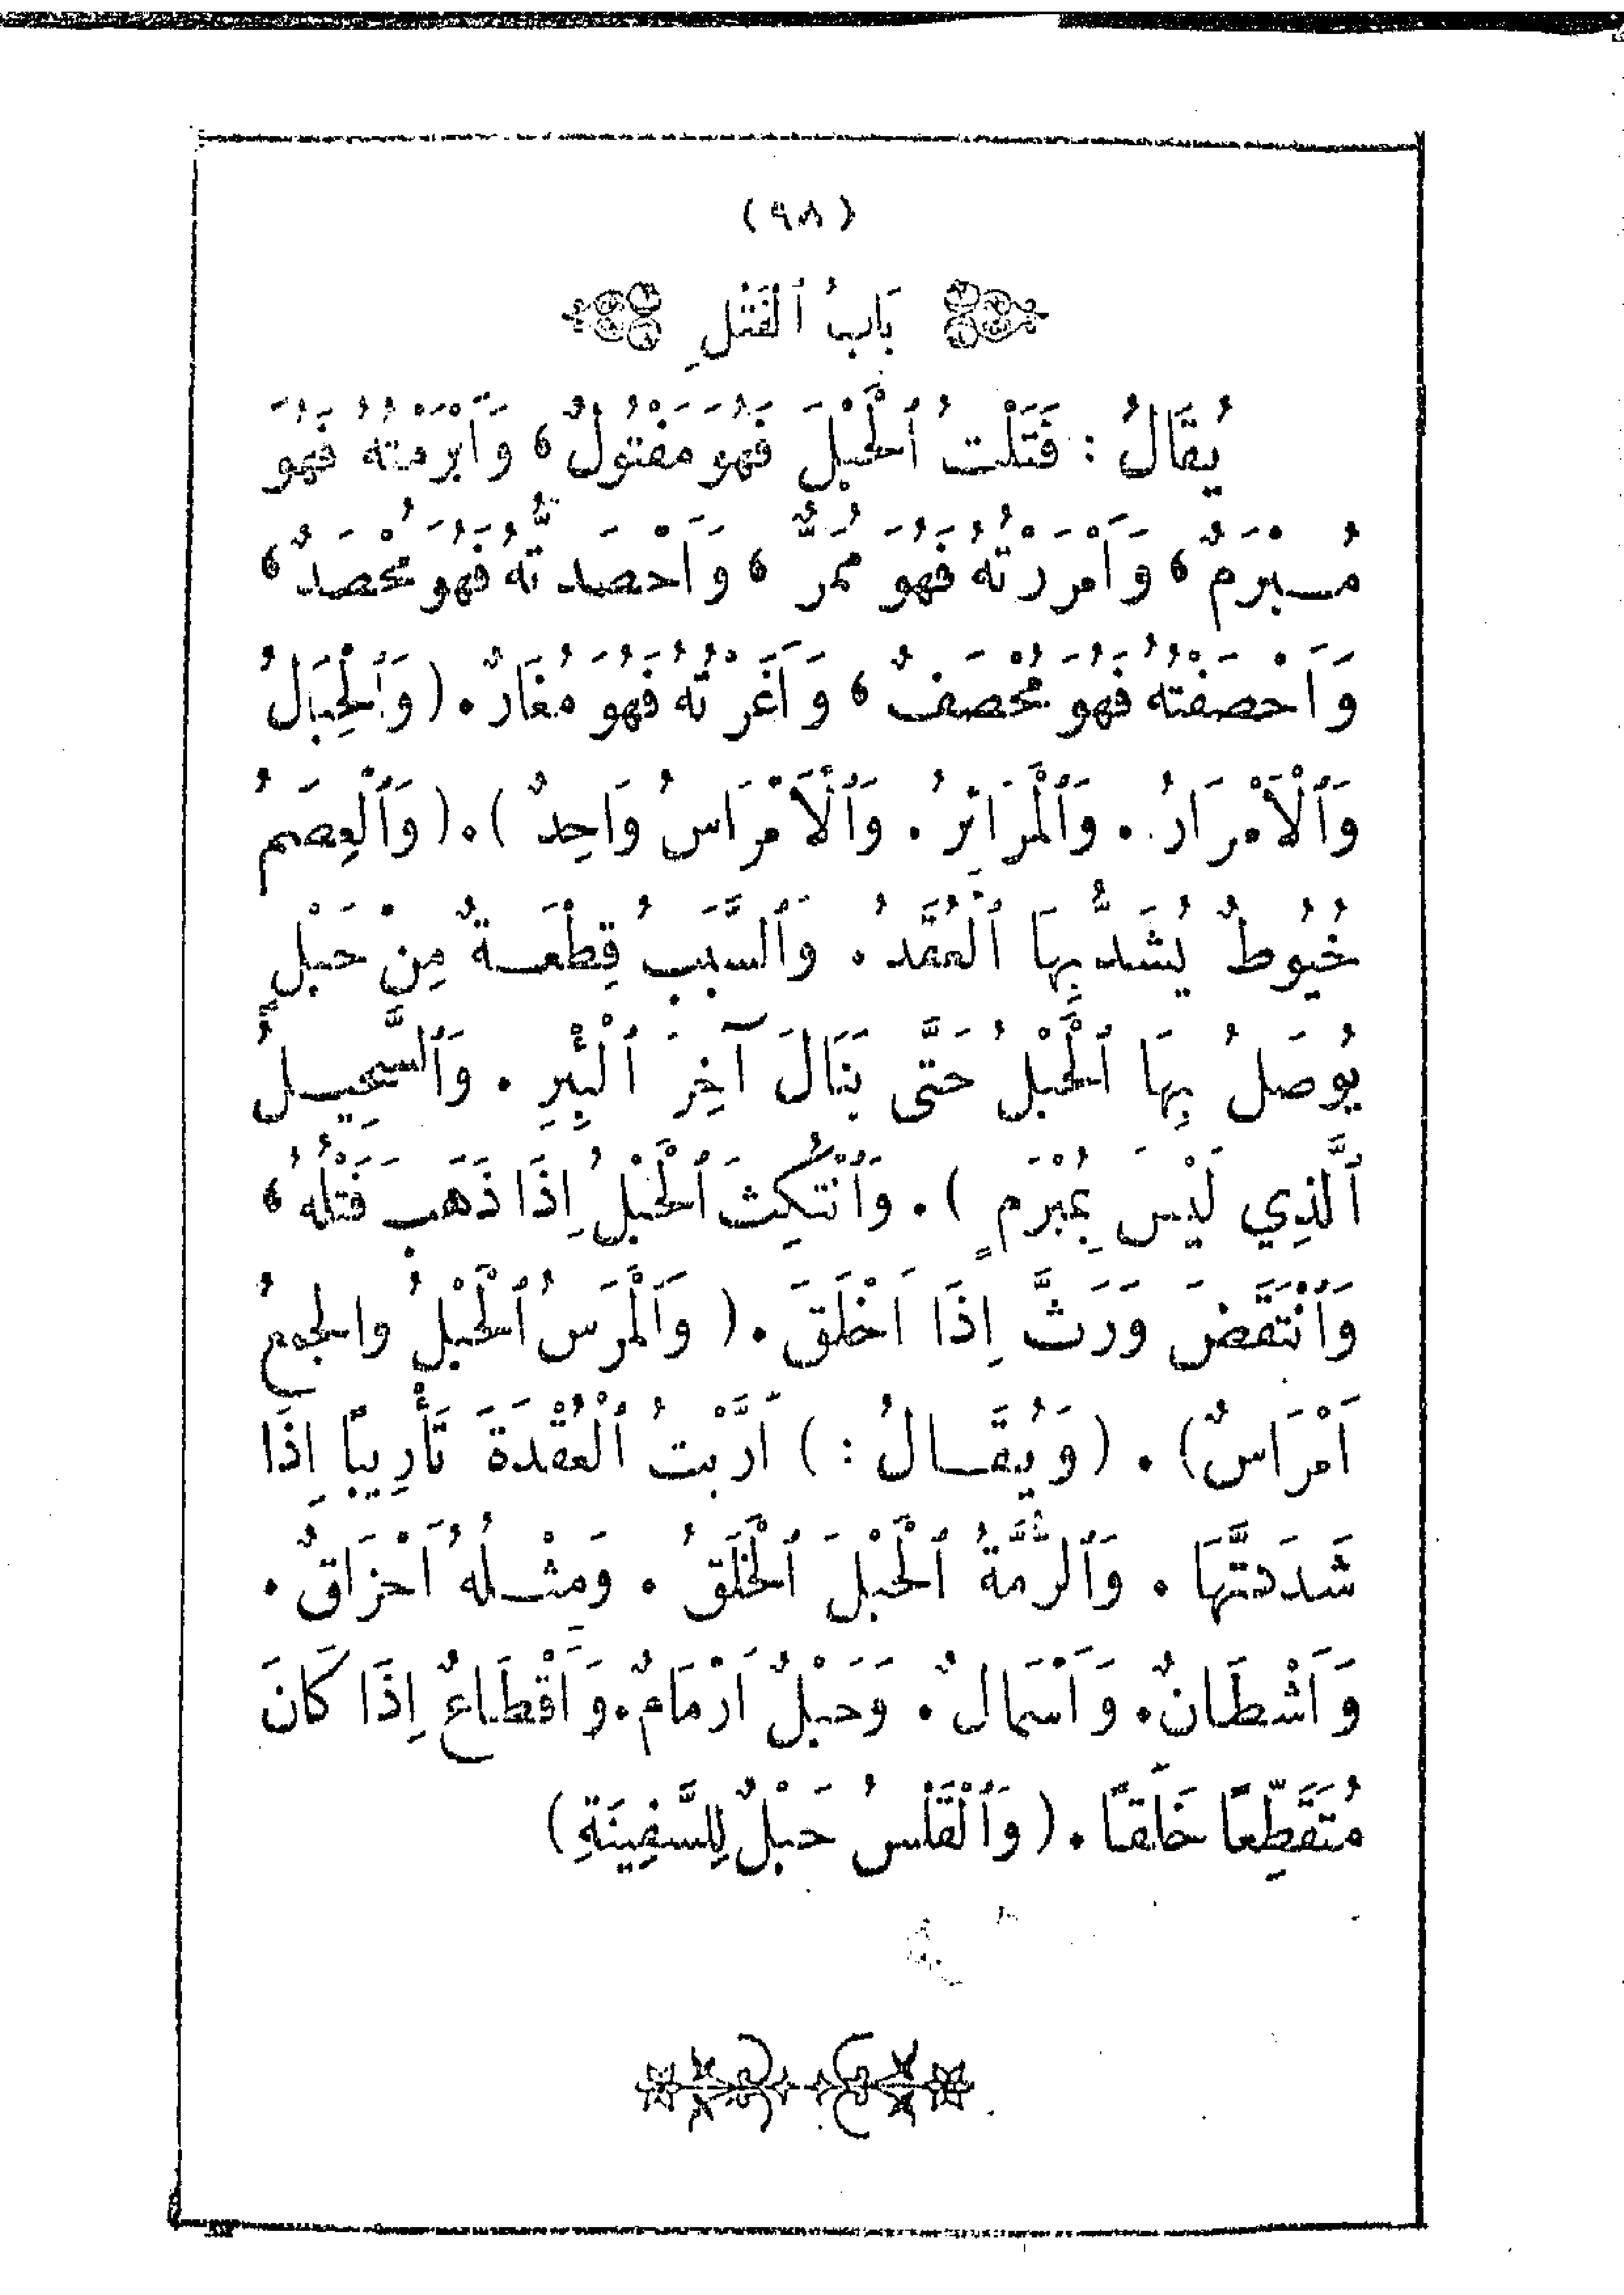 (٩٨)
بَابُ ٱلْفَتْلِ
يُقَالُ : فَتَلْتُ ٱلْحَبْلَ فَهُوَ مَفْتُولٌ ، وَاَبْرَمْتُهُ فَهُوَ
مُبْرَمٌ ، وَاَمْرَرْتُهُ فَهُوَ مُمَرٌّ ، وَاَحْصَدتُّهُ فَهُوَ مُحْصَدٌ ،
وَاَحْصَفْتُهُ فَهُوَ مُحْصَفٌ ، وَاَغَرْتُهُ فَهُوَ مُغَارٌ . (وَٱلْحِبَالُ
وَٱلْاَمْرَارُ . وَٱلْمَرَائِرُ . وَٱلْاَمْرَاسُ وَاحِدٌ ) . (وَٱلْعِصَمُ
خُيُوطٌ يُشَدُّ بِهَا ٱلْعُقَدُ . وَٱلسَّبَبُ قِطْعَةٌ مِنْ حَبْلٍ
يُوصَلُ بِهَا ٱلْحَبْلُ حَتَّى يَنَالَ آخِرَ ٱلْبِئْرِ . وَٱلسَّحِيلُ
ٱلَّذِي لَيْسَ بِمُبْرَمٍ ) . وَٱنْتُكِثَ ٱلْحَبْلُ اِذَا ذَهَبَ فَتْلُهُ ،
وَٱنْتَقَضَ وَرَثَّ اِذَا اَخْلَقَ . ( وَٱلْمَرَسُ ٱلْحَبْلُ والجمعُ
اَمْرَاسٌ) . (وَيُقَالُ : ) اَرَّبْتُ ٱلْعُقْدَةَ تَأْرِيبًا اِذَا
شَدَدتَّهَا . وَٱلرُّمَّةُ ٱلْحَبْلَ ٱلْخَلَقُ . وَمِثْلُهُ اَحْزَاقٌ .
وَاَشْطَانٌ . وَاَسْمَالٌ . وَحَبْلٌ اَرْمَامٌ . وَاَقْطَاعٌ اِذَا كَانَ
مُتَقَطِّعًا خَلَقًا . (وَٱلْقَلْسُ حَبْلٌ لِلسَّفِينَةِ)